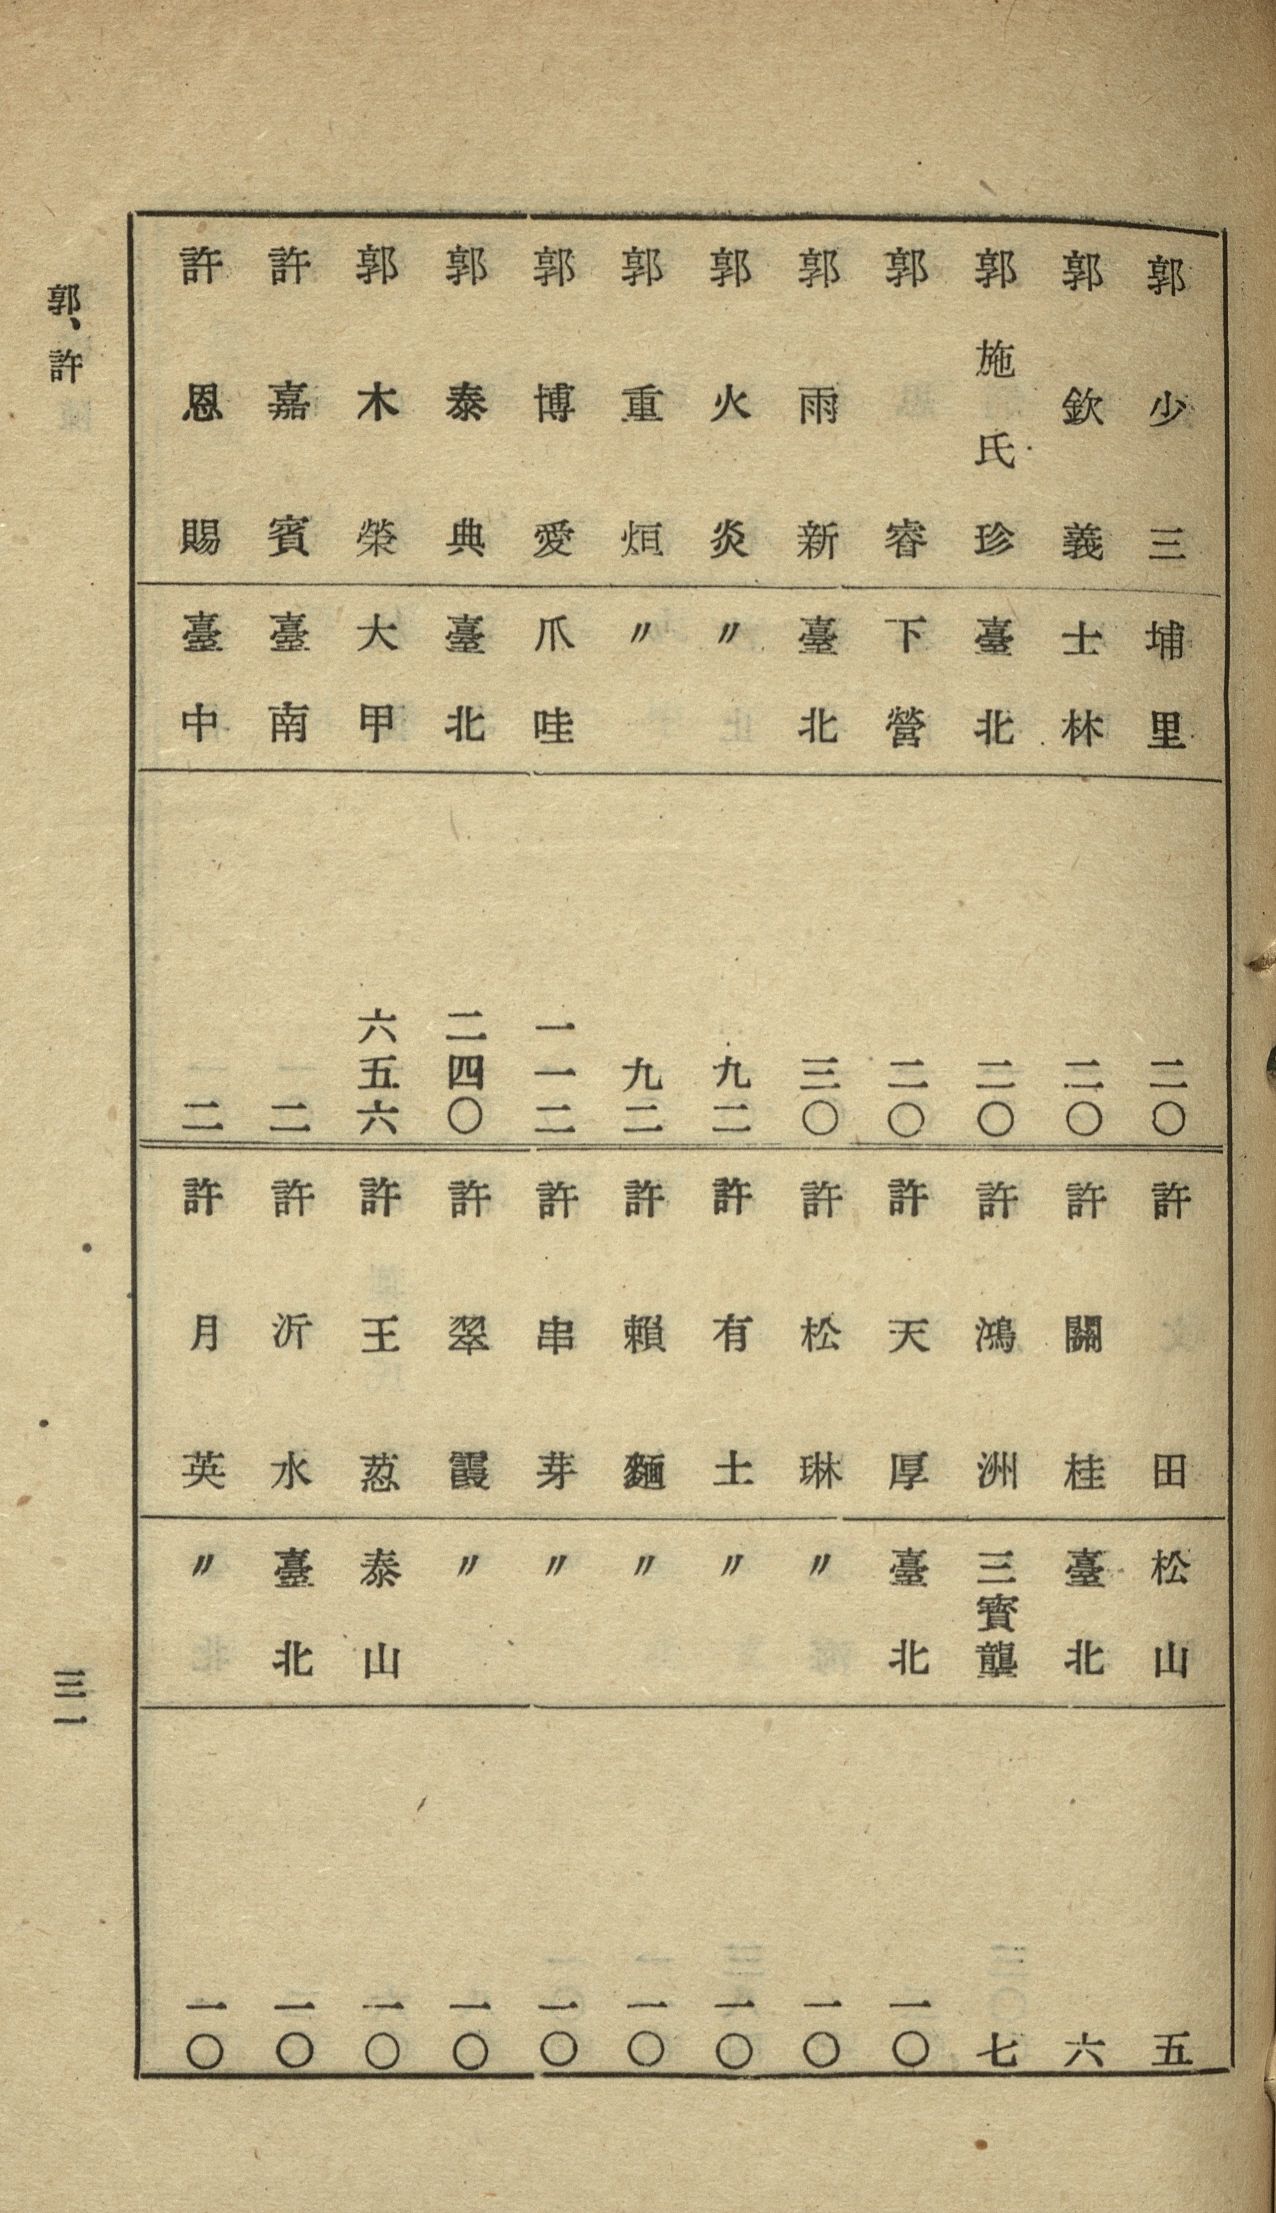 郭少三 埔里 二〇
郭欽義 士林 二〇
郭施氏珍 臺北 二〇
郭睿 下營 二〇
郭雨新 臺北 三〇
郭火炎 〃 九二
郭重烜 〃 九二
郭博愛 爪哇 一一二
郭泰典 臺北 二四〇
郭木榮 大甲 六五六
許嘉賓 臺南 二
許恩賜 臺中 二
許田 松山 五
許關桂 臺北 六
許鴻洲 三寶壟 七
許天厚 臺北 一〇
許松琳 〃 一〇
許有土 〃 一〇
許賴麵 〃 一〇
許串芽 〃 一〇
許翠霞 〃 一〇
許王葱 泰山 一〇
許沂水 臺北 一〇
許月英 〃 一〇
郭、許
三一